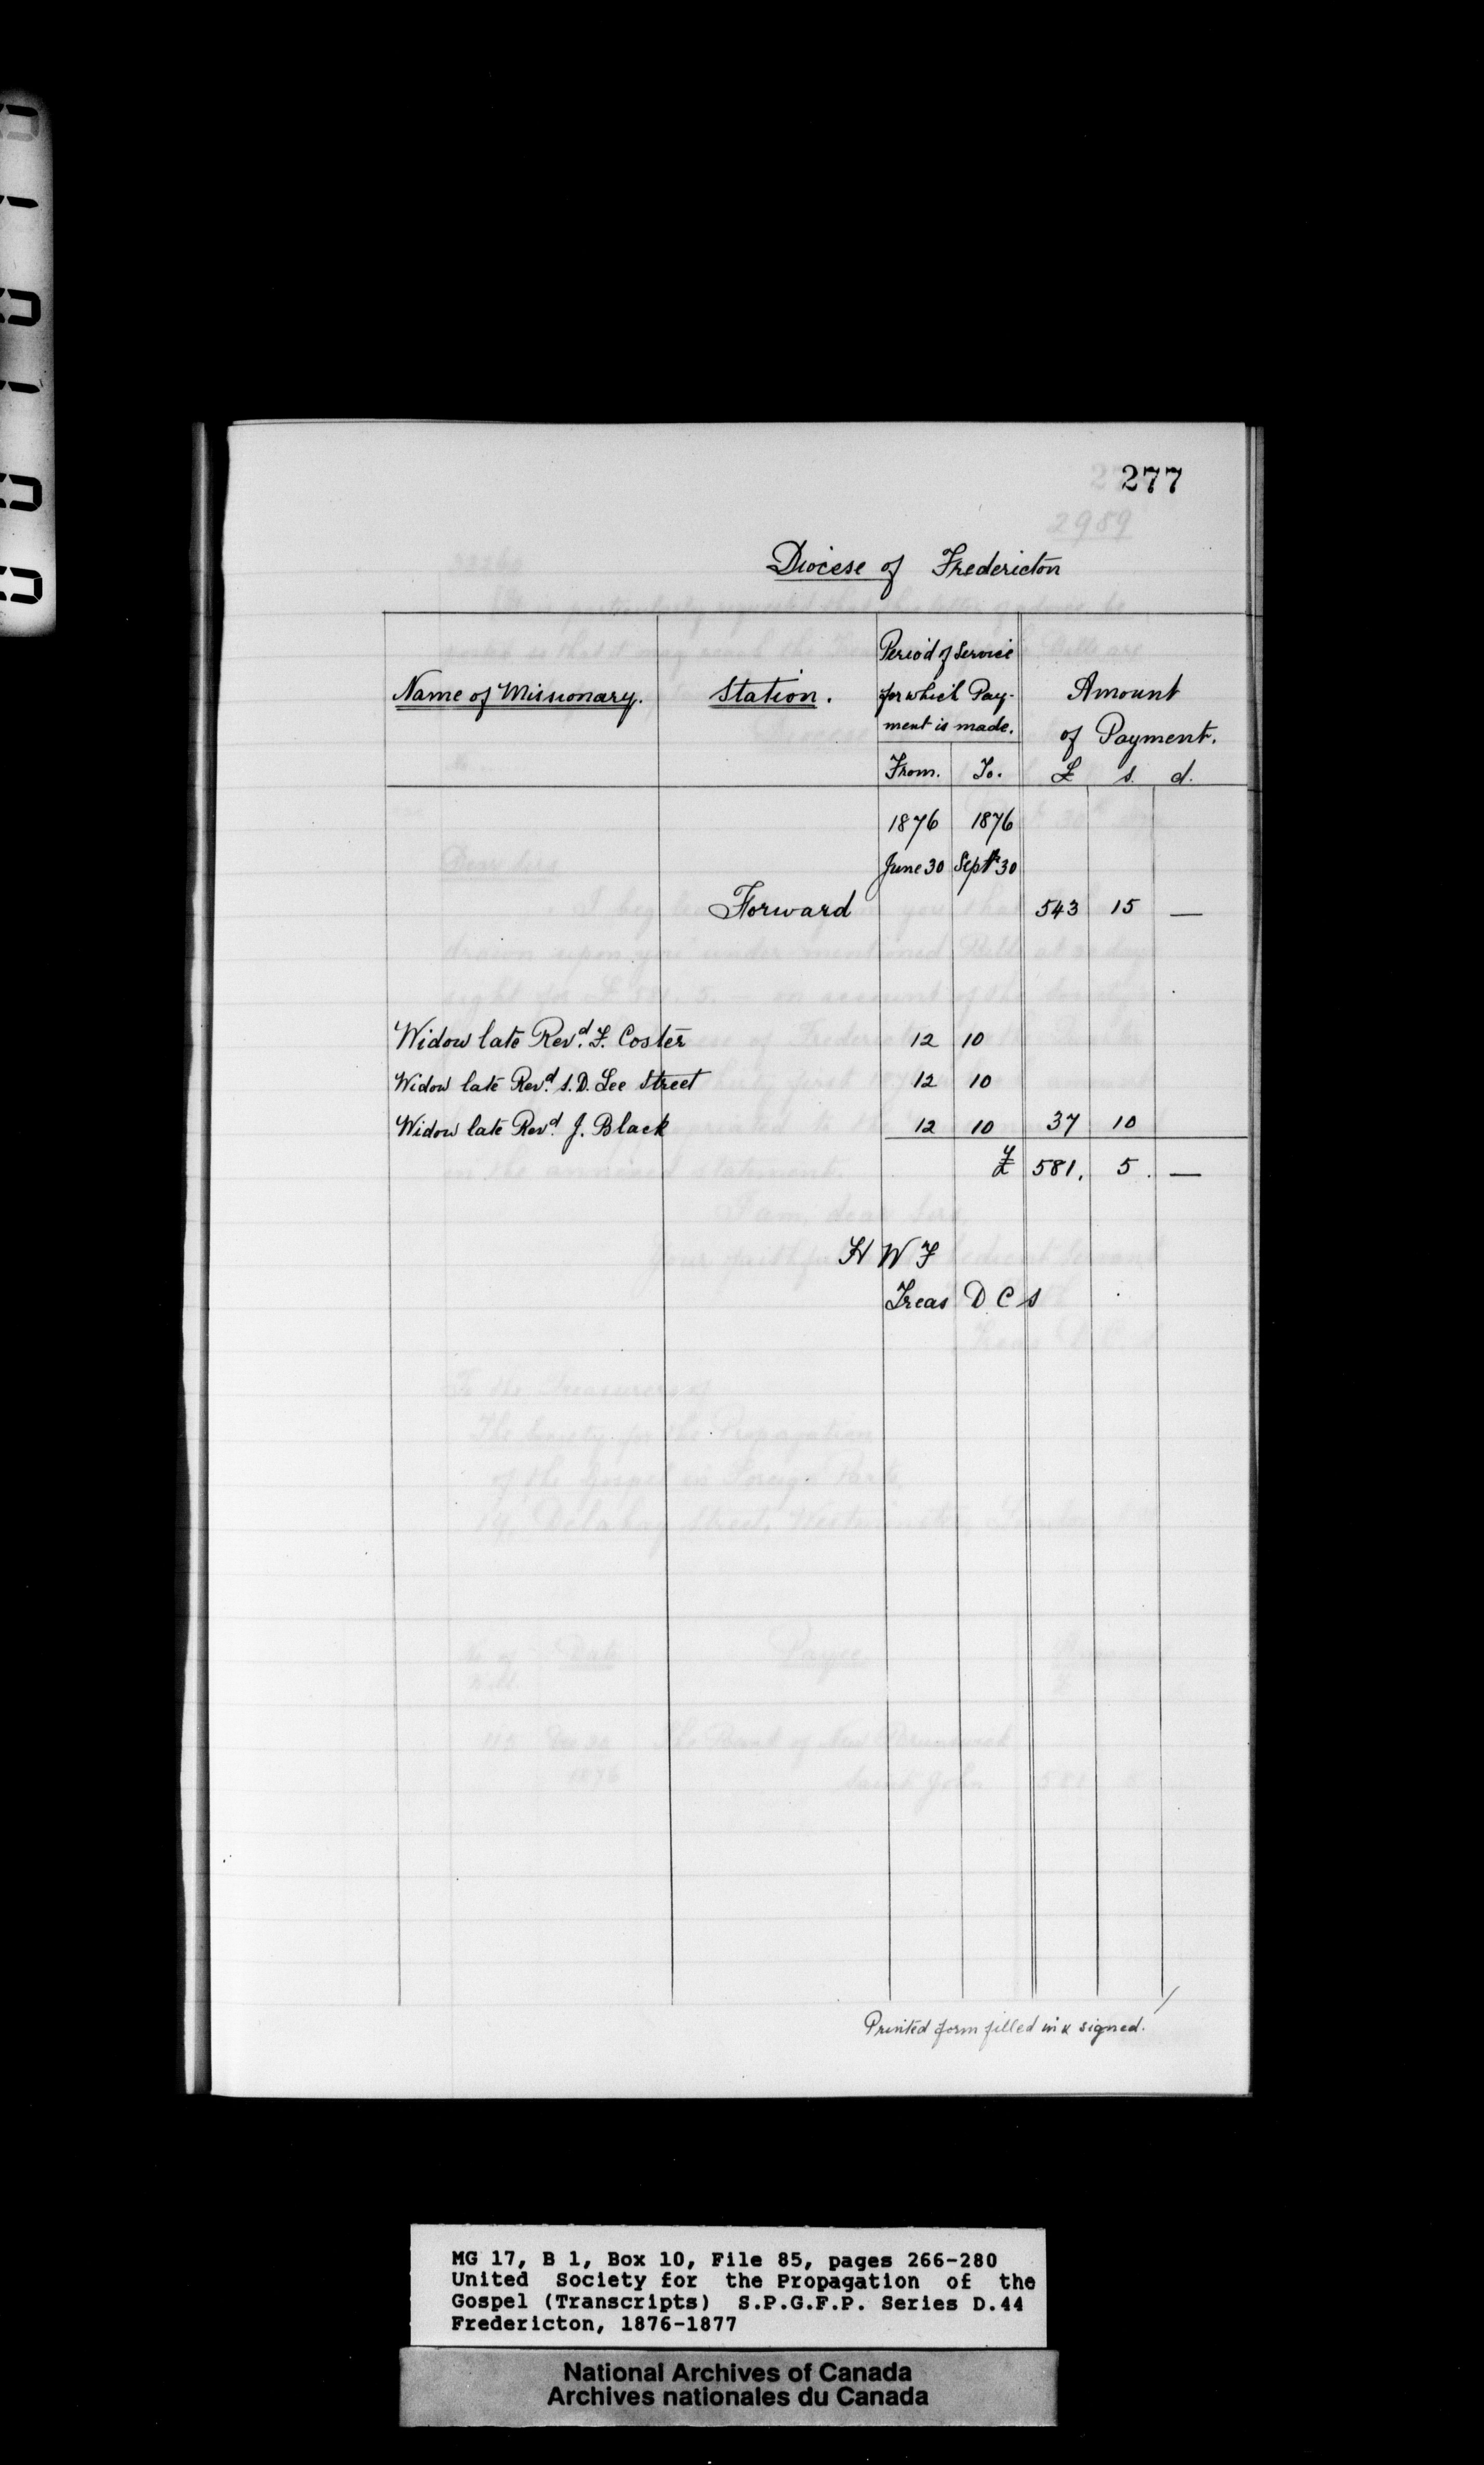 277
Diocese of Fredericton
Name of Missionary.
Station.
Period of Service
for which Pay-
ment is made.
Amount
of Payment.
From. To. £ s. d.
1876 1876
June 30 Septr 30
Forward 543 15 —
Widow late Revd. F. Coster 12 10
Widow late Revd. S. D. Lee Street 12 10
Widow late Revd. J. Black 12 10 37 10
£ 581. 5. —
H W F
Treas D C S
Printed form filled in & signed.
MG 17, B 1, Box 10, File 85, pages 266-280
United Society for the Propagation of the
Gospel (Transcripts) S.P.G.F.P. Series D.44
Fredericton, 1876-1877
National Archives of Canada
Archives nationales du Canada